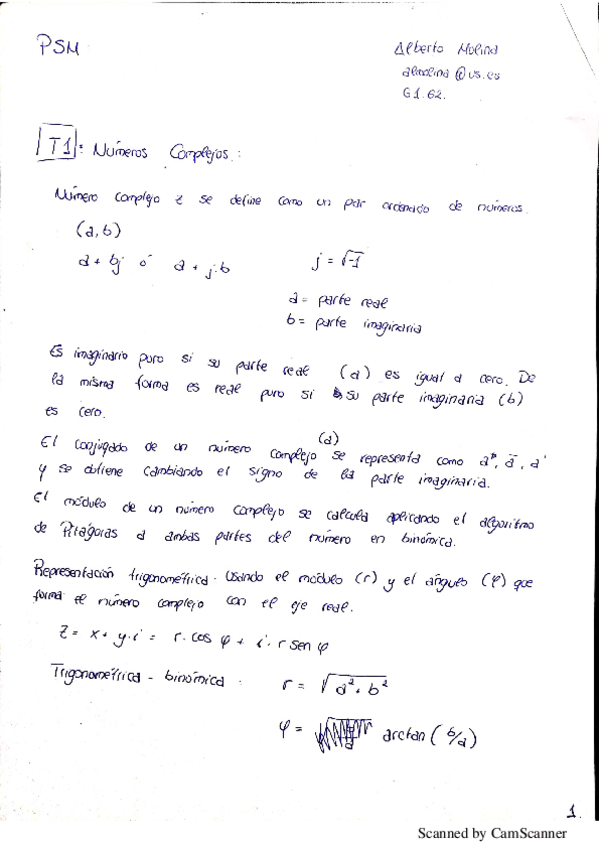 PSM
Alberto Molina
almolina@us.es
G1.62.
T1: Números Complejos:
Número complejo z se define como un par ordenado de números.
(a,b)
a + bj ó a + j·b
j = √-1
a = parte real
b = parte imaginaria
Es imaginario puro si su parte real (a) es igual a cero. De
la misma forma es real puro si su parte imaginaria (b)
es cero.
El conjugado de un número complejo (a) se representa como a*, ā, a'
y se obtiene cambiando el signo de la parte imaginaria.
El módulo de un número complejo se calcula aplicando el algoritmo
de Pitágoras a ambas partes del número en binómica.
Representación trigonométrica. Usando el módulo (r) y el ángulo (φ) que
forma el número complejo con el eje real.
z = x + y·i = r·cos φ + i·r sen φ
Trigonométrica - binómica:
r = √a² + b²
φ = arctan (b/a)
1.
Scanned by CamScanner